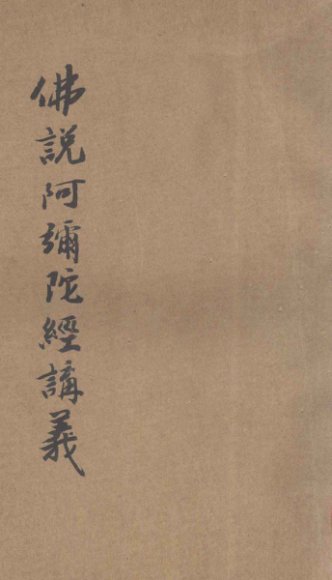 佛說阿彌陀經講義